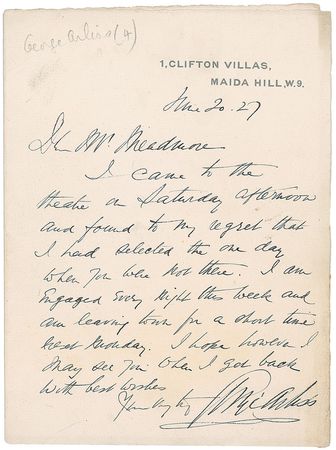 George Arliss (4)
1, CLIFTON VILLAS,
MAIDA HILL, W.9.
June 20. 27
Dear Mr. Meadmore
I came to the
theatre on Saturday afternoon
and found to my regret that
I had selected the one day
when you were not there. I am
engaged every night this week and
am leaving town for a short time
next Monday. I hope however I
may see you when I get back
With best wishes
George Arliss